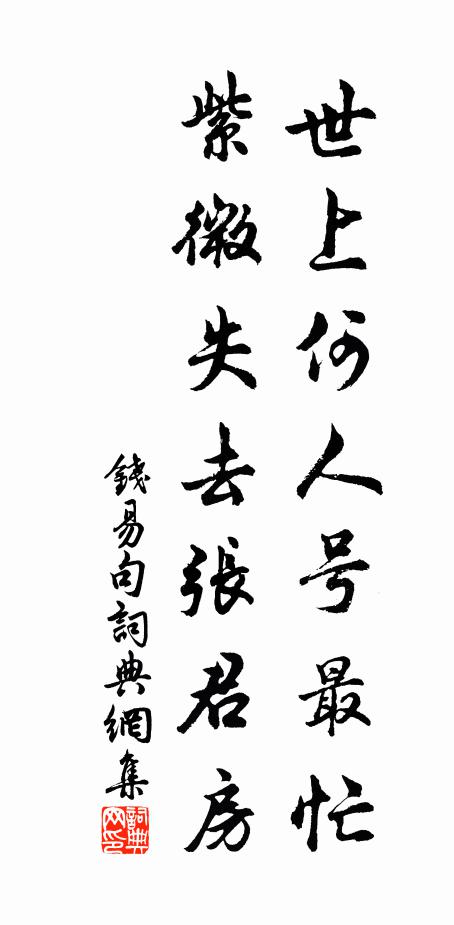 世上何人号最忙
紫微失去張君房
錢易句詞典網集
詞典网印